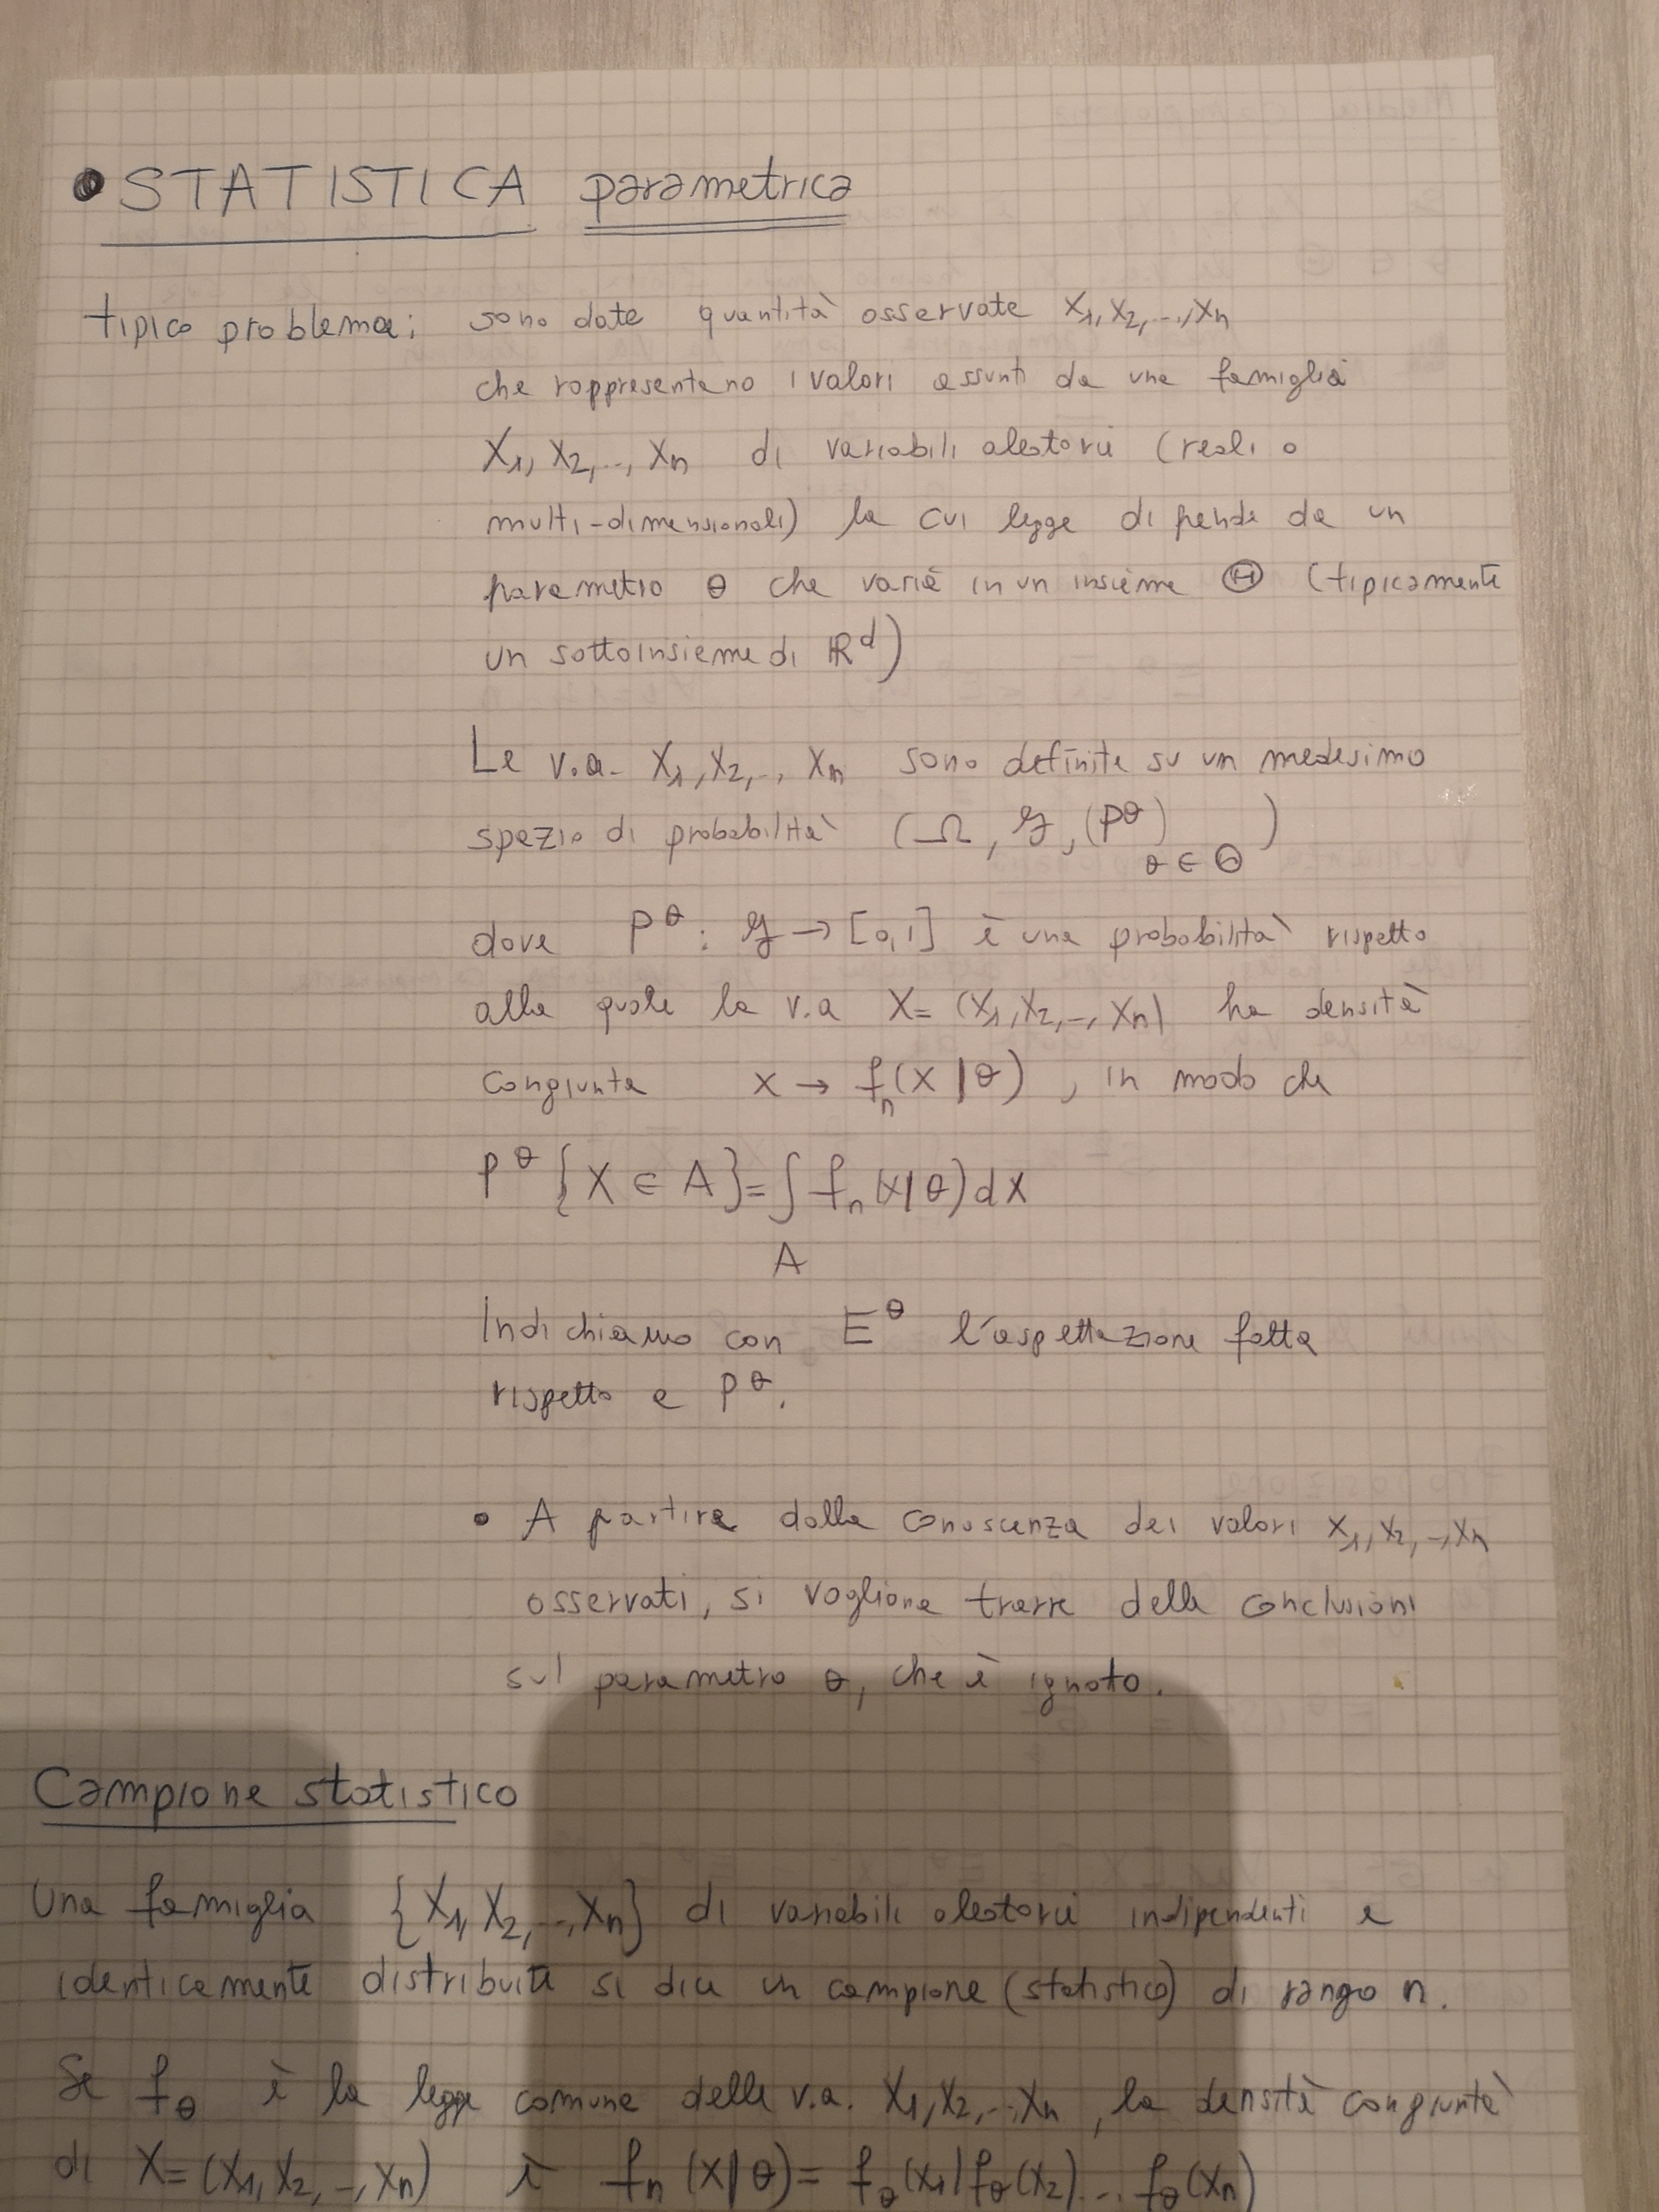 • STATISTICA parametrica
tipico problema: sono date quantità osservate x₁, x₂, .., xₙ
che rappresentano i valori assunti da una famiglia
X₁, X₂, .., Xₙ di variabili aleatorie (reali o
multi-dimensionali) la cui legge dipende da un
parametro θ che varia in un insieme Θ (tipicamente
un sottoinsieme di ℝᵈ)
Le v.a. X₁, X₂, .., Xₙ sono definite su un medesimo
spazio di probabilità (Ω, 𝓕, (P^θ)_{θ ∈ Θ})
dove P^θ : 𝓕 → [0,1] è una probabilità rispetto
alla quale la v.a X = (X₁, X₂, .., Xₙ) ha densità
congiunta x → fₙ(x | θ) , in modo che
P^θ {X ∈ A} = ∫ fₙ(x | θ) dx
A
Indichiamo con E^θ l'aspettazione fatta
rispetto a P^θ.
• A partire dalla conoscenza dei valori x₁, x₂, .., xₙ
osservati, si vogliono trarre delle conclusioni
sul parametro θ, che è ignoto.
Campione statistico
Una famiglia {X₁, X₂, .., Xₙ} di variabili aleatorie indipendenti e
identicamente distribuite si dice un campione (statistico) di rango n.
Se f_θ è la legge comune delle v.a. X₁, X₂, .., Xₙ , la densità congiunta
di X = (X₁, X₂, .., Xₙ) è fₙ (x | θ) = f_θ(x₁) f_θ(x₂) ... f_θ(xₙ)